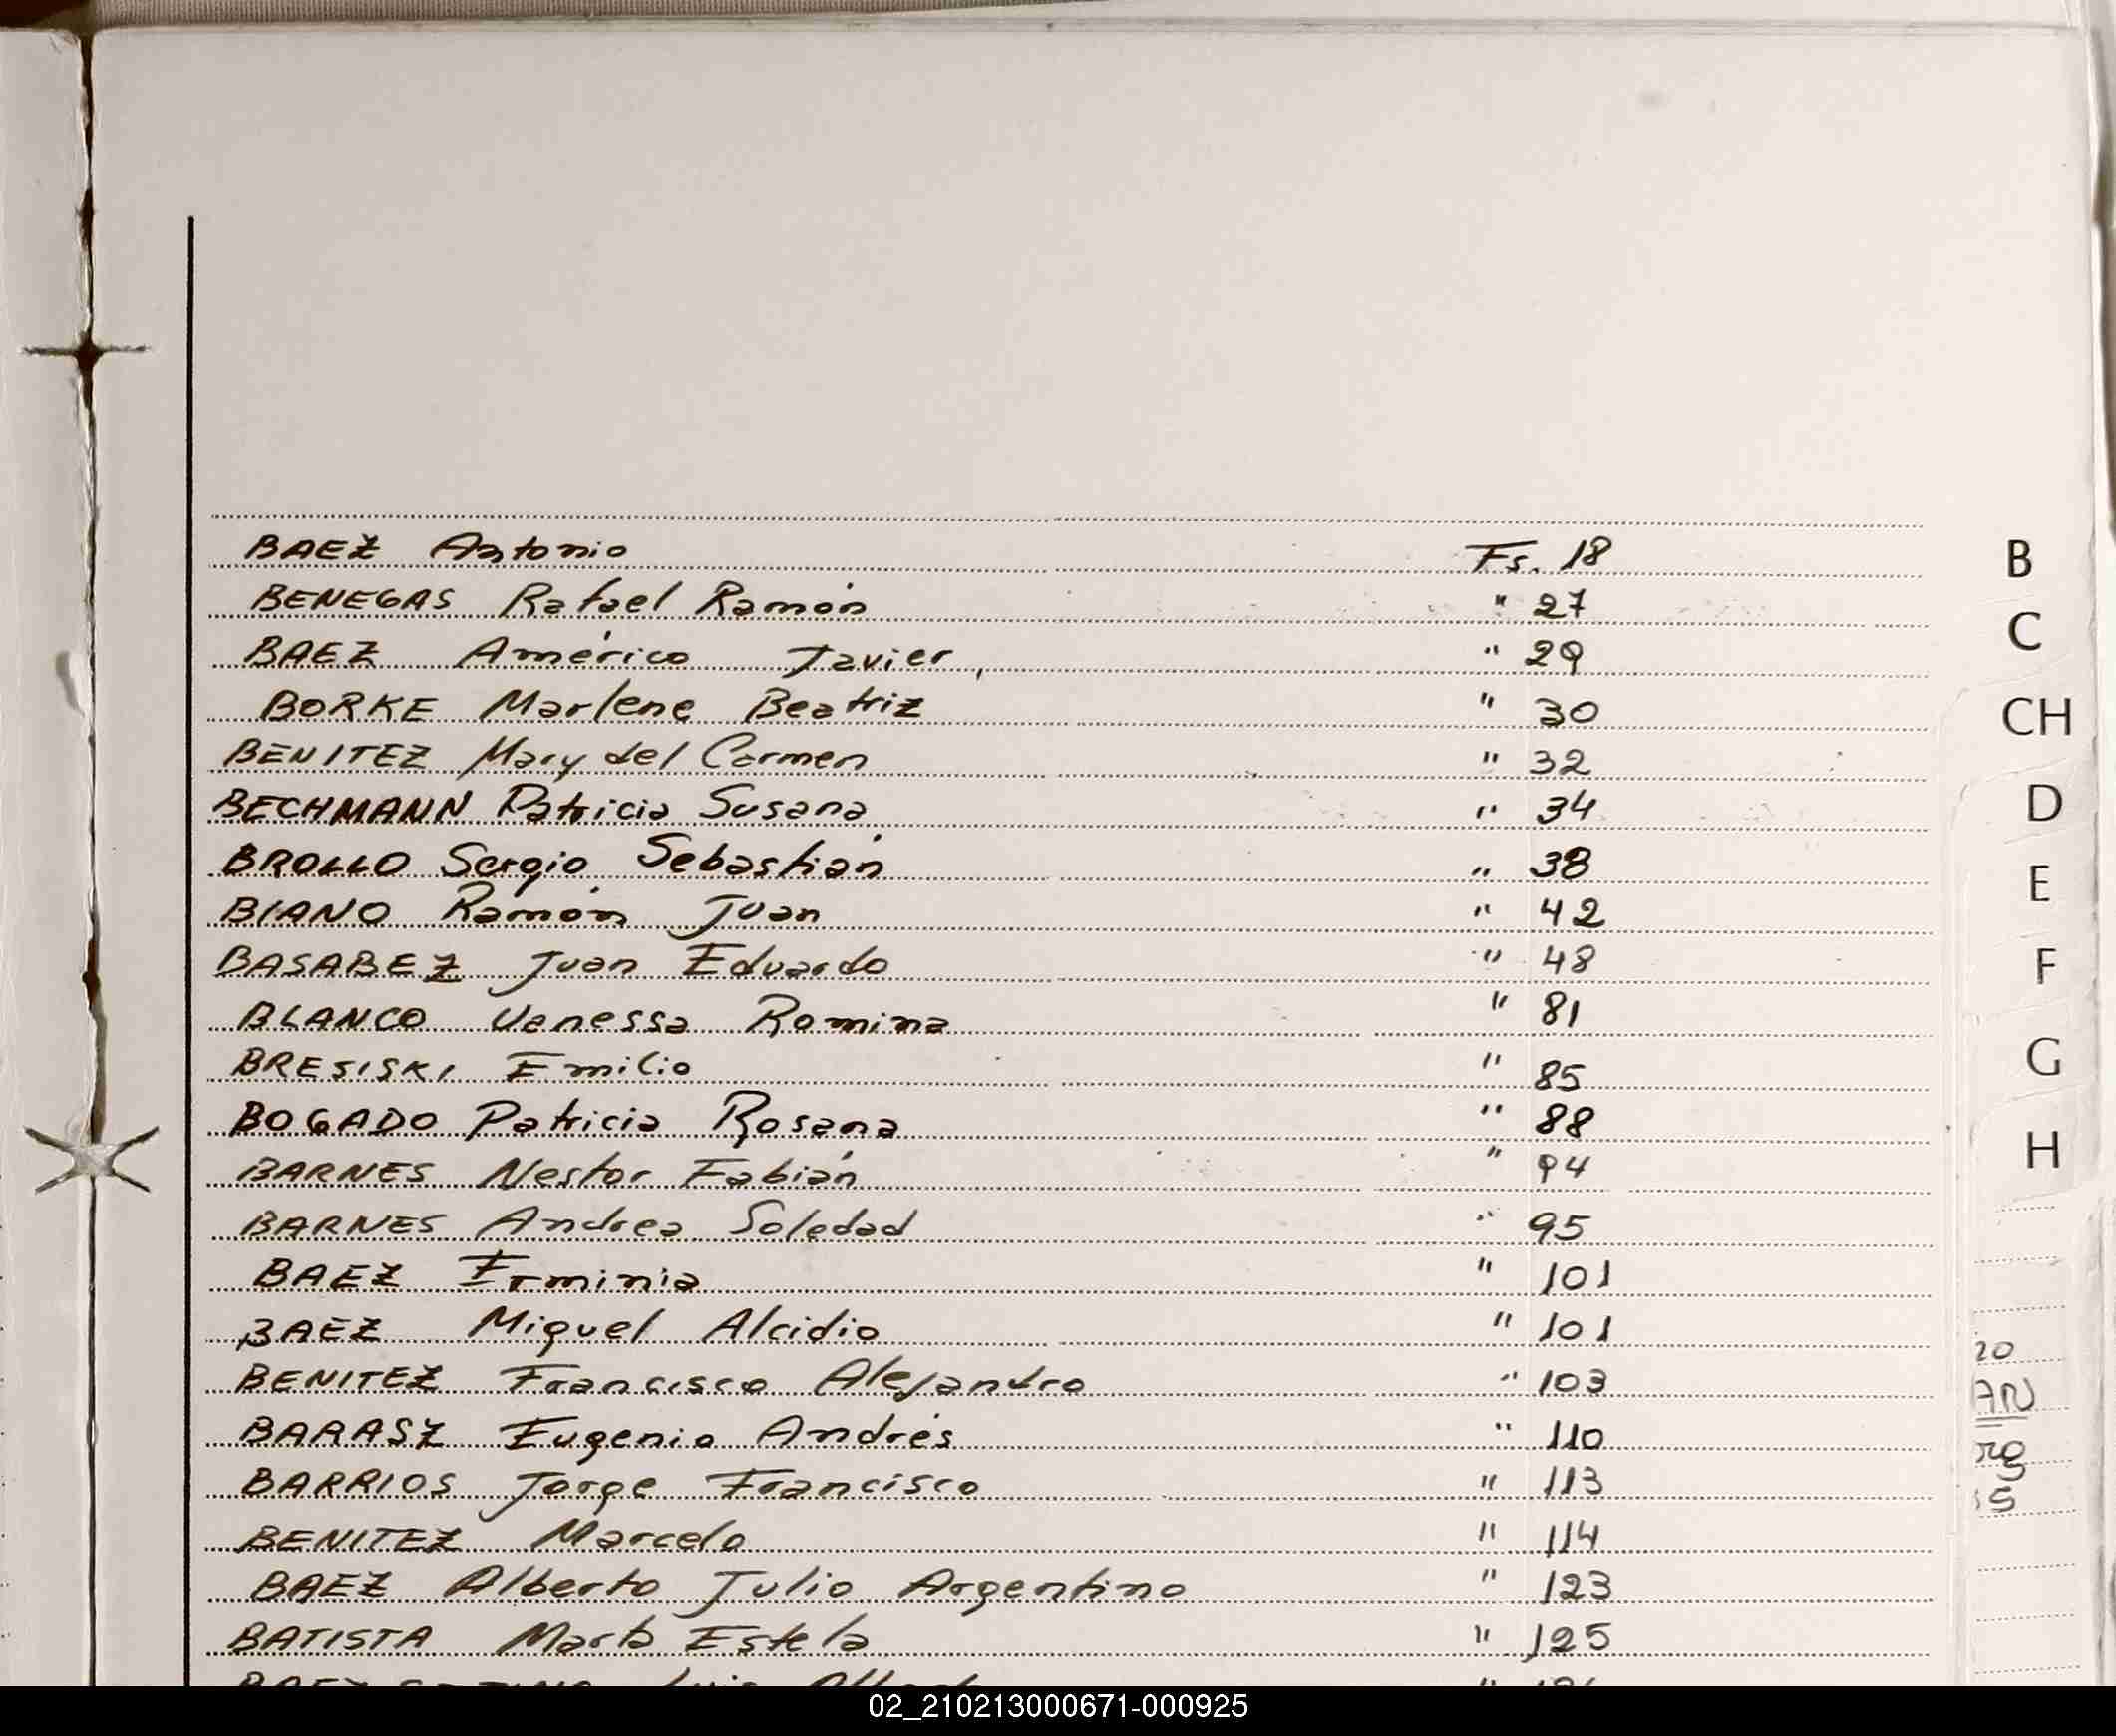 BAEZ Antonio Fs. 18
BENEGAS Rafael Ramón " 27
BAEZ Américo Javier, " 29
BORKE Marlene Beatriz " 30
BENITEZ Mary del Carmen " 32
BECHMANN Patricia Susana " 34
BROLLO Sergio Sebastián " 38
BIANO Ramón Juan " 42
BASABEZ Juan Eduardo " 48
BLANCO Vanessa Romina " 81
BRESISKI Emilio " 85
BOGADO Patricia Rosana " 88
BARNES Nestor Fabián " 94
BARNES Andrea Soledad " 95
BAEZ Erminia " 101
BAEZ Miguel Alcidio " 101
BENITEZ Francisco Alejandro " 103
BARASZ Eugenio Andrés " 110
BARRIOS Jorge Francisco " 113
BENITEZ Marcelo " 114
BAEZ Alberto Julio Argentino " 123
BATISTA Marta Estela " 125
B
C
CH
D
E
F
G
H
02_210213000671-000925